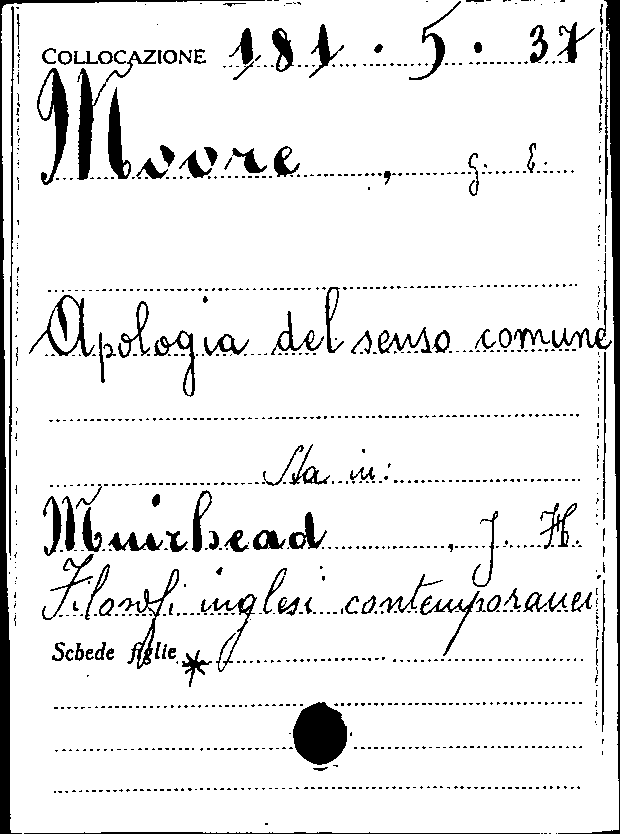 COLLOCAZIONE 181 . 5 . 37
Moore , G. E.
Apologia del senso comune
Sta in:
Muirhead , J. H.
Filosofi inglesi contemporanei
Schede figlie *